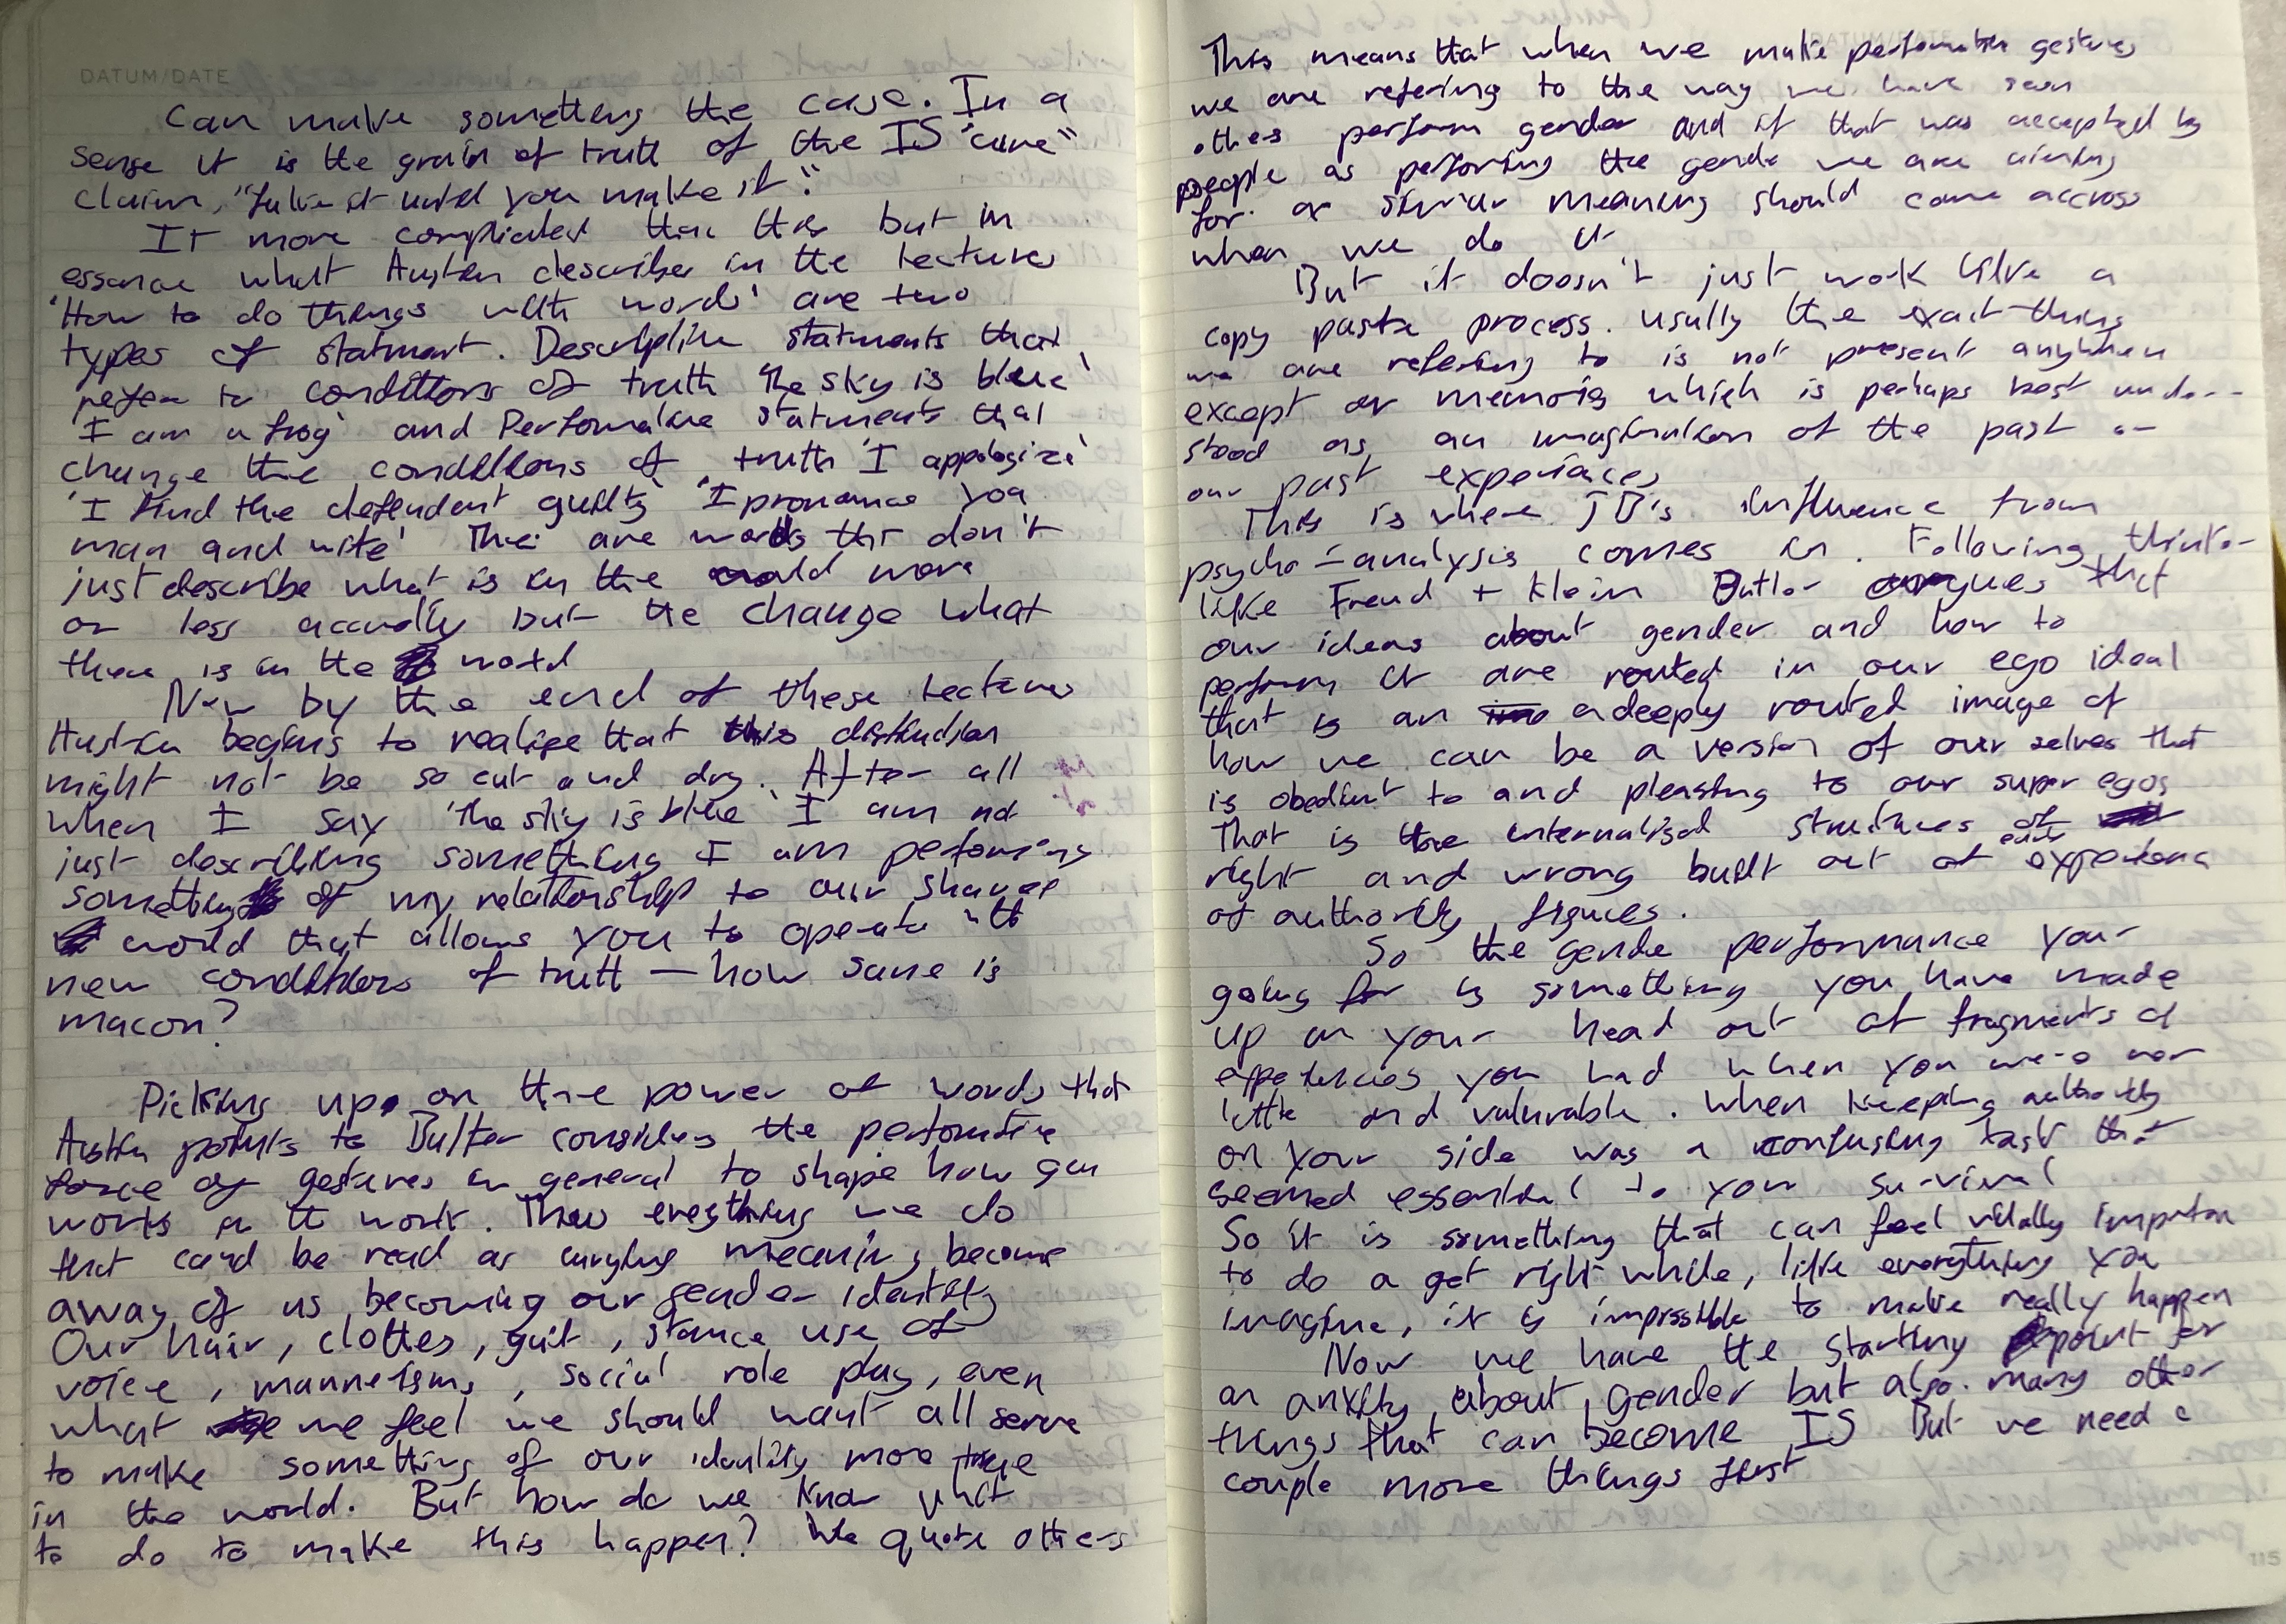 DATUM/DATE
can make something the case. In a
sense it is the grain of truth of the IS "cure"
claim, "fake it until you make it".
It more complicated than this but in
essence what Austin describes in the lectures
'How to do things with words' are two
types of statment. Descriptive statments that
refer to conditions of truth 'The sky is blue'
'I am a frog' and Performative statments that
change the conditions of truth 'I appologize'
'I find the defendent guilty' 'I pronounce you
man and wife' The are words tht don't
just describe what is in the world more
or less accuratly but the change what
there is in the world
Now by the end of these lectures
Austin begins to realise that this distinction
might not be so cut and dry. After all
when I say 'The sky is blue' I am not
just describing something I am performing
something of my relationship to our shared
world that allows you to operate with
new conditions of truth — how sane is
macon?
Picking up on the power of words that
Austin points to Butler considers the performative
force of gestures in general to shape how
works in the world. Thus everything we do
that card be read as carrying meaning become
away of us becoming our gender identity
Our hair, clothes, gait, stance use of
voice, mannerisms, social role play, even
what we feel we should want all serve
to make something of our identity more true
in the world. But how do we know what
to do to make this happen? We quote others
DATUM/DATE
This means that when we make performative gestures
we are refering to the way we have seen
others perform gender and if that was accepted by
people as performing the gende we are aiming
for a similar meaning should come accross
when we do it
But it doesn't just work like a
copy paste process. usually the exact thing
we are refering to is not present anywhere
except as memories which is perhaps best under-
stood as an imagination of the past or
our past experiences
This is where JB's influence from
psycho-analysis comes in. Following thinkers
like Freud + Klein Butler argues that
our ideas about gender and how to
perform it are routed in our ego ideal
that is an a deeply routed image of
how we can be a version of our selves that
is obedient to and pleasing to our super egos
That is the internalised structures of
right and wrong built out of early experience
of authority figures.
So the gender performance your
going for is something you have made
up in your head out of fragments of
experiences you had when you were very
little and vulnrable. When keeping authority
on your side was a confusing task that
seemed essential to your survival
So it is something that can feel vitally importan
to do a get right while, like everything you
imagine, it is impossible to make really happen
Now we have the starting point for
an anxity about gender but also many other
things that can become IS But we need a
couple more things first
115